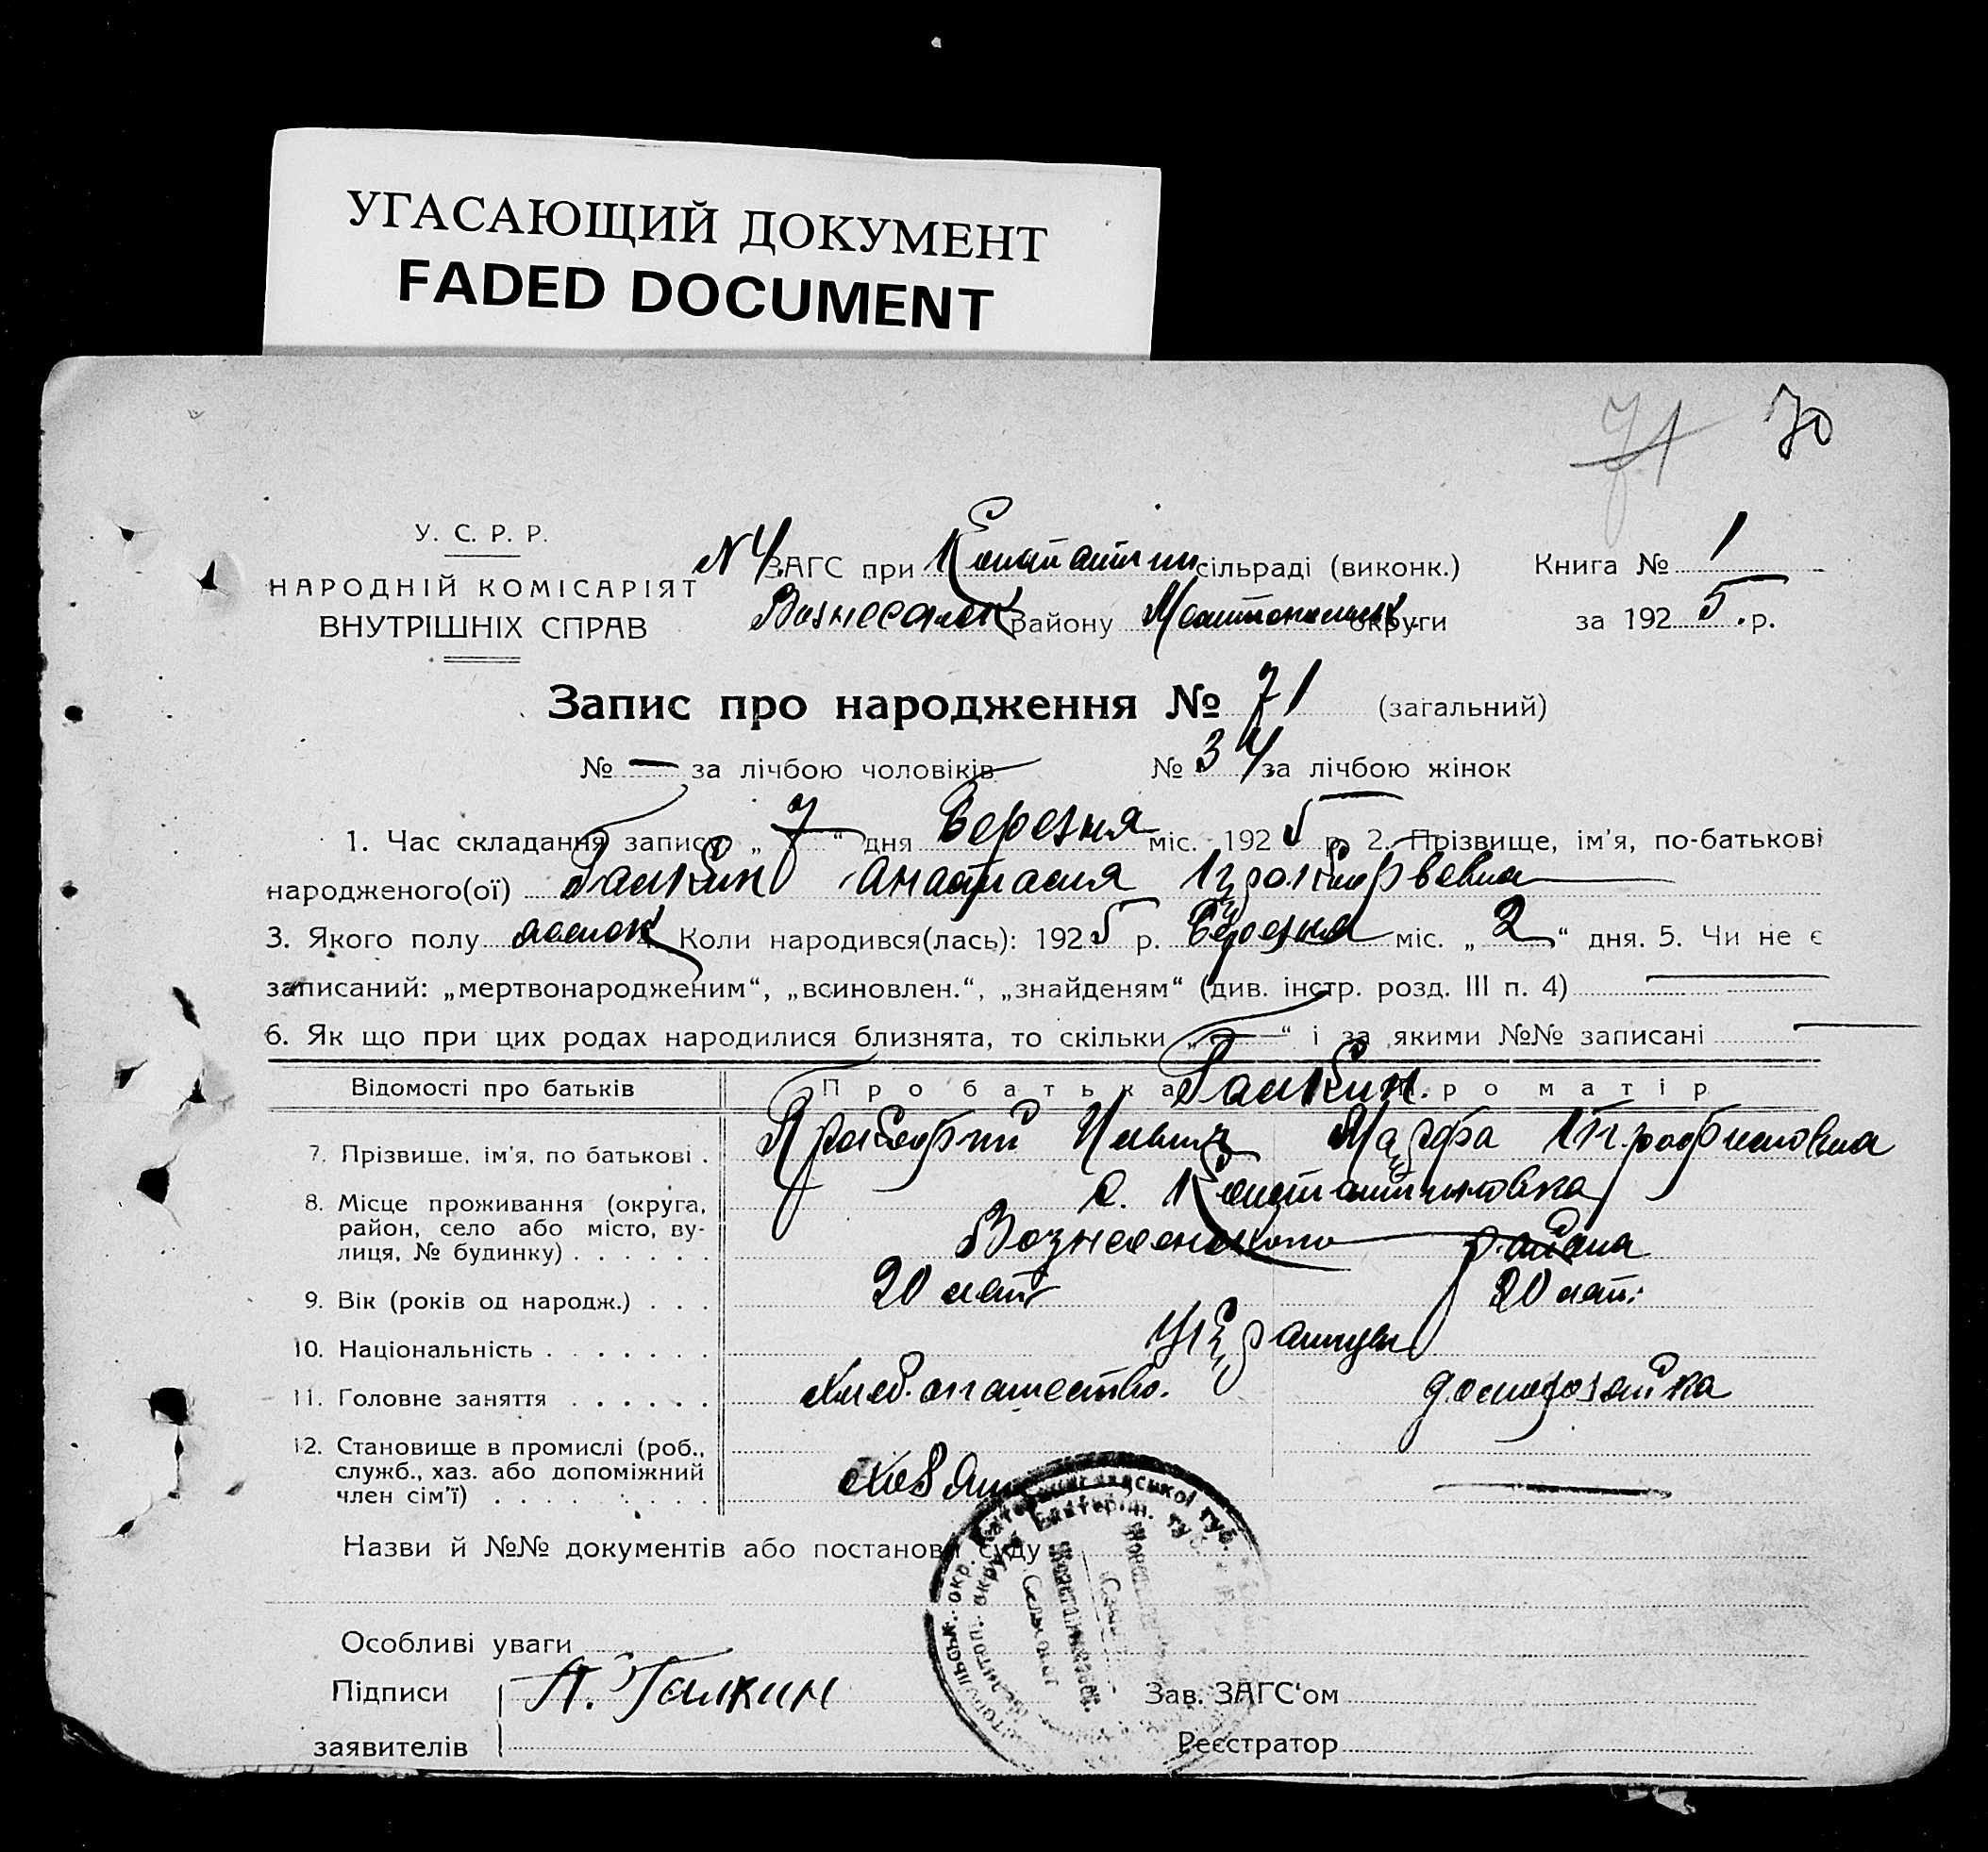 УГАСАЮЩИЙ ДОКУМЕНТ
FADED DOCUMENT
71 70
У. С. Р. Р.
НАРОДНІЙ КОМІСАРІЯТ
ВНУТРІШНІХ СПРАВ
N 4 ЗАГС при Константин сільраді (виконк.) Книга № 1
Вознесенск району Мелитопольск. округи за 1925.р.
Запис про народження № 71 (загальний)
№ — за лічбою чоловіків № 34 за лічбою жінок
1. Час складання запису „7“ дня Березня міс. 1925 р. 2. Прізвище, ім’я, по-батькові
народженого(ої) Галкин Анастасия
3. Якого полу женск 4. Коли народився(лась): 1925 р. Березня міс. „2“ дня. 5. Чи не є
записаний: „мертвонародженим“, „всиновлен.“, „знайденям“ (див. інстр. розд. III п. 4) —
6. Як що при цих родах народилися близнята, то скільки „—“ і за якими №№ записані —
Відомості про батьків Про батька Галкин. Про матір
7. Прізвище, ім’я, по батькові . Прокофий Ильич Марфа Трофимовна
8. Місце проживання (округа, с. Константиновка
район, село або місто, ву- Вознесенского района
лиця, № будинку) . . . . . .
9. Вік (років од народж.) . . . 20 лет 20 лет.
10. Національність . . . . . . . Украинцы
11. Головне заняття . . . . . . Хлебопашество. домохозяйка
12. Становище в промислі (роб.,
служб., хаз. або допоміжний
член сім’ї) . . . . . . . . . Хозяин —
Назви й №№ документів або постанови суду
Особливі уваги
Підписи П. Галкин Зав. ЗАГС‘ом
заявителів Реєстратор